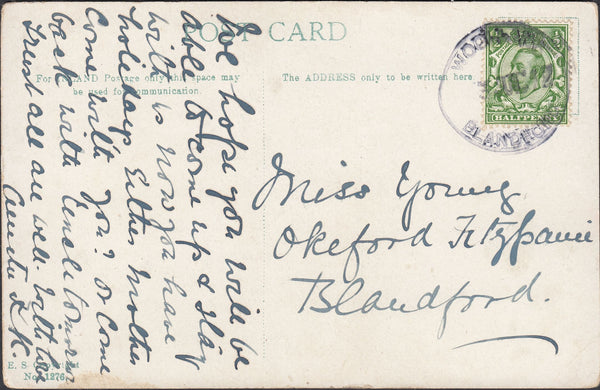 POST CARD
For INLAND Postage only this space may
be used for communication.
The ADDRESS only to be written here.
We hope you will be
able to come up & stay
with us now you have
holidays. Either Mother
come with you? or come
back with Uncle tomorrow
Trust all are well. With love
Auntie
Miss Young
Okeford Fitzpaine
Blandford.
HALFPENNY
BLANDFORD
E. S.
No. 1276.